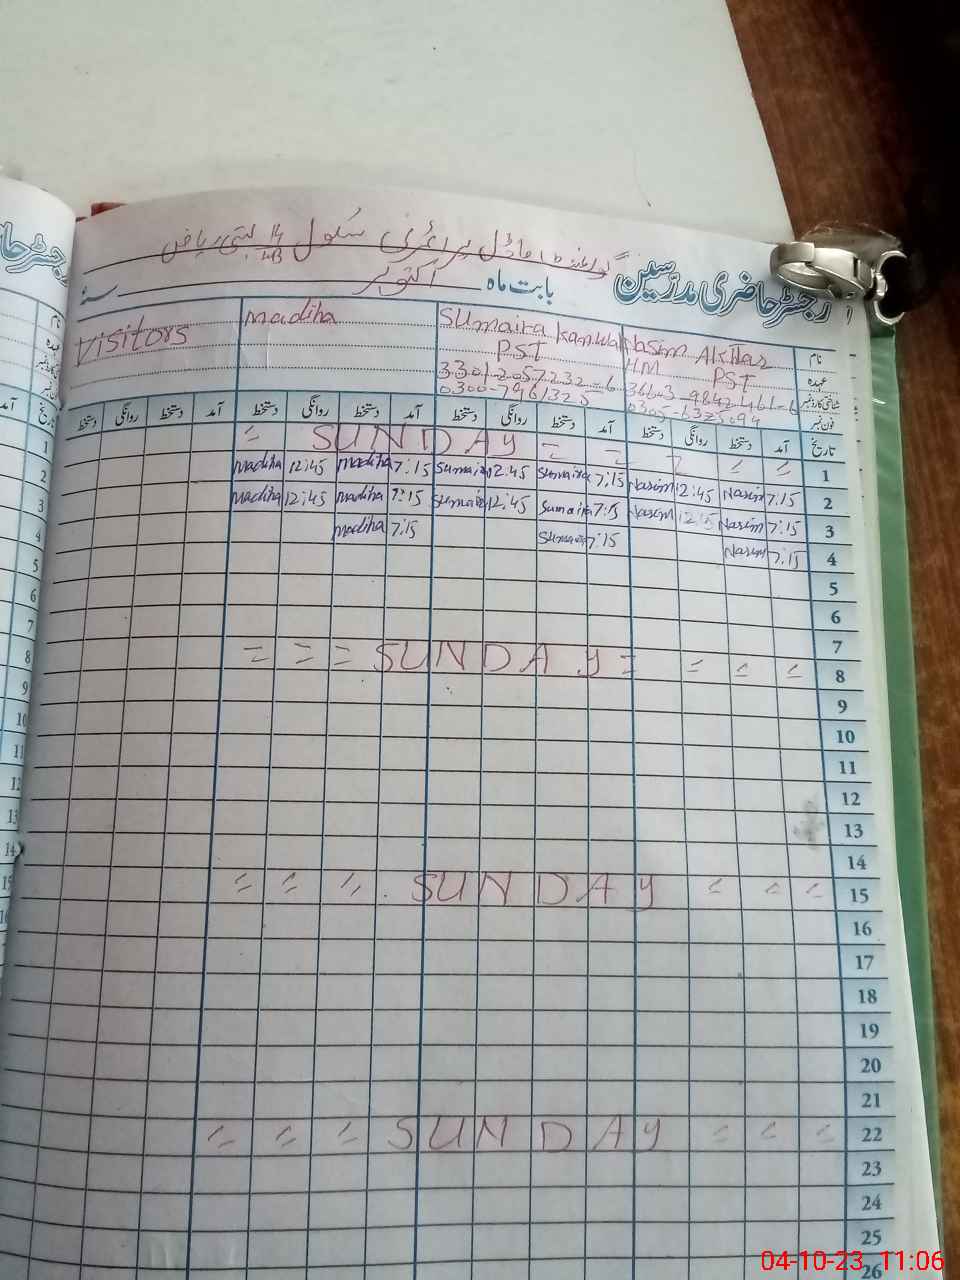 گورنمنٹ ماڈل پرائمری سکول 14/MB بستی ریاض
رجسٹر حاضری مدرسین
بابت ماہ اکتوبر سنہ
نام Nasim Akhtar Sumaira Kanwal Madiha Visitors
عہدہ HM PST PST
شناختی کارڈ نمبر 36603-9842461-6 33012057232-6
فون نمبر 0300-7961325
تاریخ آمد دستخط روانگی دستخط آمد دستخط روانگی دستخط آمد دستخط روانگی دستخط آمد دستخط روانگی دستخط
1 = SUNDAY =
2 Madiha 12:45 Madiha 7:15 Sumaira 12:45 Sumaira 7:15 Nasim 12:45 Nasim 7:15
3 Madiha 12:45 Madiha 7:15 Sumaira 12:45 Sumaira 7:15 Nasim 12:45 Nasim 7:15
4 Madiha 7:15 Sumaira 7:15 Nasim 7:15
5
6
7
8 = = = SUNDAY = = = =
9
10
11
12
13
14
15 = = = SUNDAY = = =
16
17
18
19
20
21
22 = = = SUNDAY = = =
23
24
25
26
04-10-23 11:06